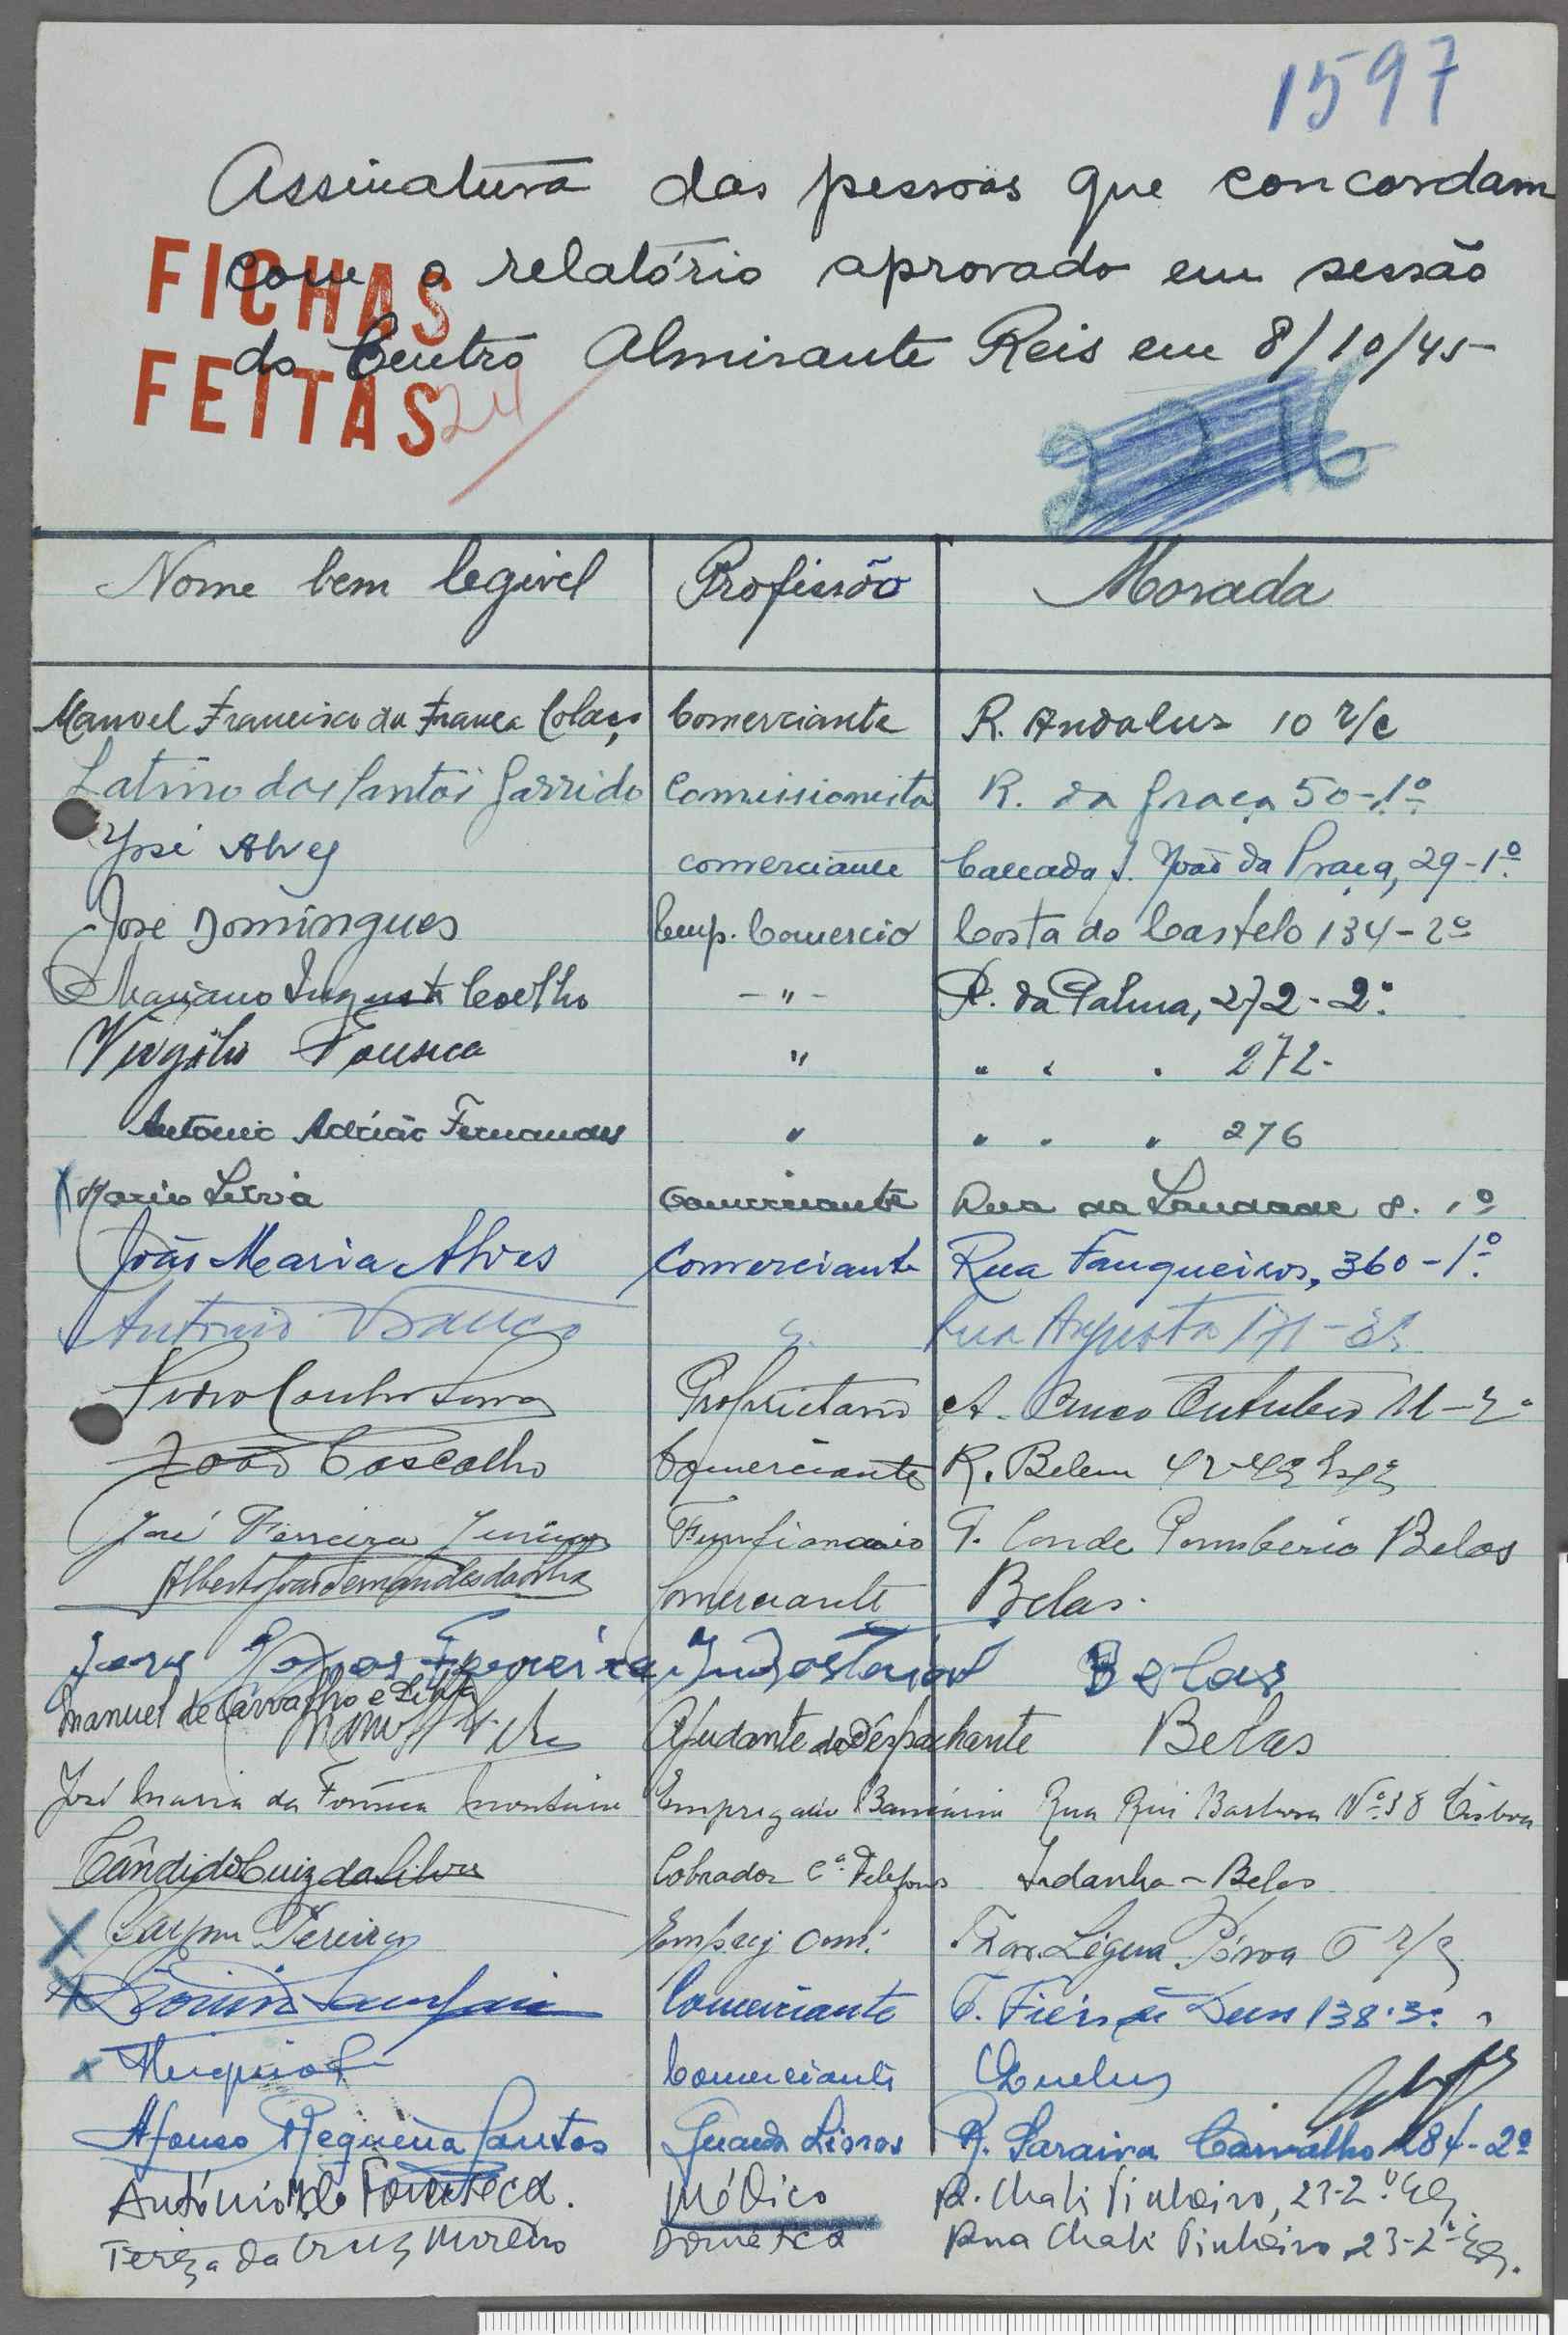 1597
Assinatura das pessoas que concordam
com o relatório aprovado em sessão
do Centro Almirante Reis em 8/10/45
FICHAS
FEITAS
24
216
Nome bem legivel Profissão Morada
Manuel Francisco da Franca Colaço Comerciante R. Andaluz 10 r/c
Latino dos Santos Garrido Comissionista R. da Graça 50-1º
José Alves comerciante Calçada S. João da Praça, 29-1º
José Domingues Emp. Comercio Costa do Castelo 134-2º
Mariano Augusto Coelho - " - R. da Palma, 272-2º
Virgílio Fonseca " " " " 272-
António Adrião Fernandes " " " " 276
X Mario Silva Comerciante Rua da Saudade 8. 1º
João Maria Alves Comerciante Rua Fanqueiros, 360-1º
Antonio Franco Rua Augusta
Proprietario A. Cinco Outubro
João Cascalho Comerciante R. Belem
José Ferreira Junior Funcionario T. Conde Pombeiro Belas
Alberto Comerciante Belas.
Ferreira Industrial Belas
Manuel de Carvalho e Silva
Ajudante de Despachante Belas
José Maria da Fonseca Monteiro Empregado Bancário Rua Rui Barbosa Nº 38 Lisboa
Cândido Luiz da Silva Cobrador Cª Telefones Idanha - Belas
X Pereira Empreg Com. Trav. Légua Póvoa 6 r/c
X Comerciante 138-3º
x Comerciante Queluz
Afonso Requena Santos Guarda Livros R. Saraiva Carvalho 284-2º
António de Fonseca. Médico R. Chabi Pinheiro, 23-2º Esq.
Tereza da Cruz Moreno Doméstica Rua Chabi Pinheiro 23-2º Esq.